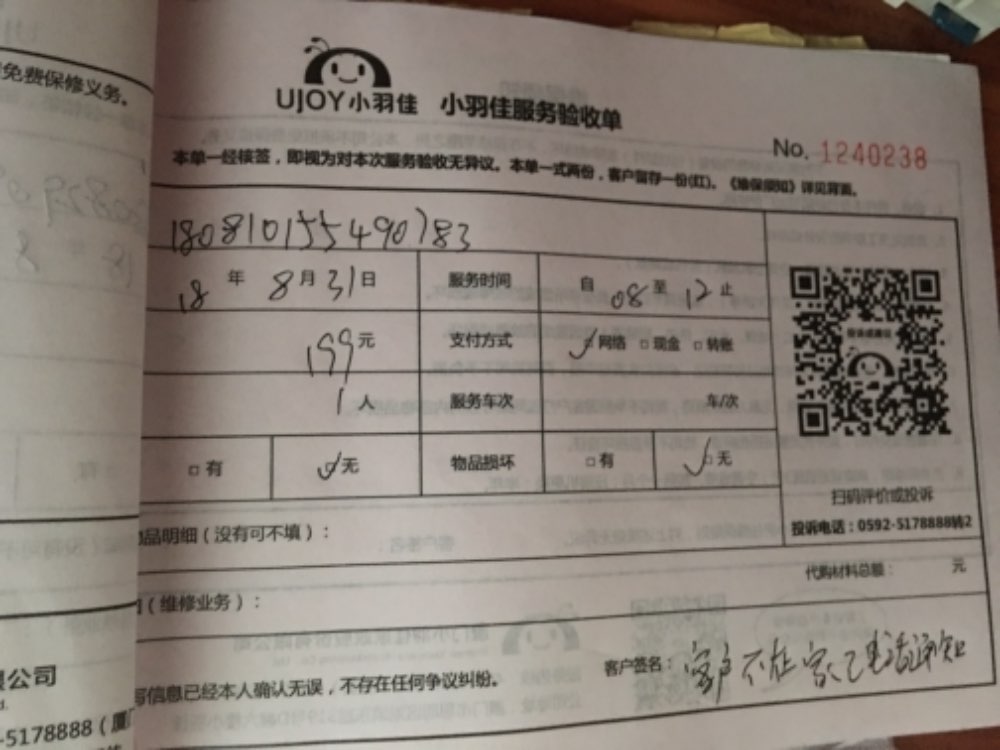 免费保修义务。
UJOY小羽佳 小羽佳服务验收单
No. 1240238
本单一经核签，即视为对本次服务验收无异议。本单一式两份，客户留存一份(红)。《维保须知》详见背面。
180810155490783
18 年 8 月 31 日 服务时间 自 08 至 12 止
199 元 支付方式 ☑网络 □现金 □转账
1 人 服务车次 车/次
□有 ☑无 物品损坏 □有 ☑无
扫码评价或投诉
投诉电话：0592-5178888转2
品明细（没有可不填）：
代购材料总额： 元
（维修业务）：
客户签名：客户不在家已电话通知
写信息已经本人确认无误，不存在任何争议纠纷。
限公司
-5178888（厦